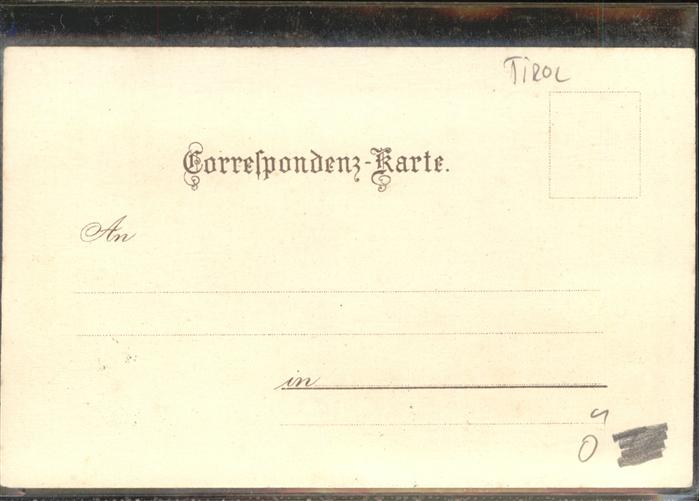 TIROL
Correſpondenz-Karte.
An
in
Ö